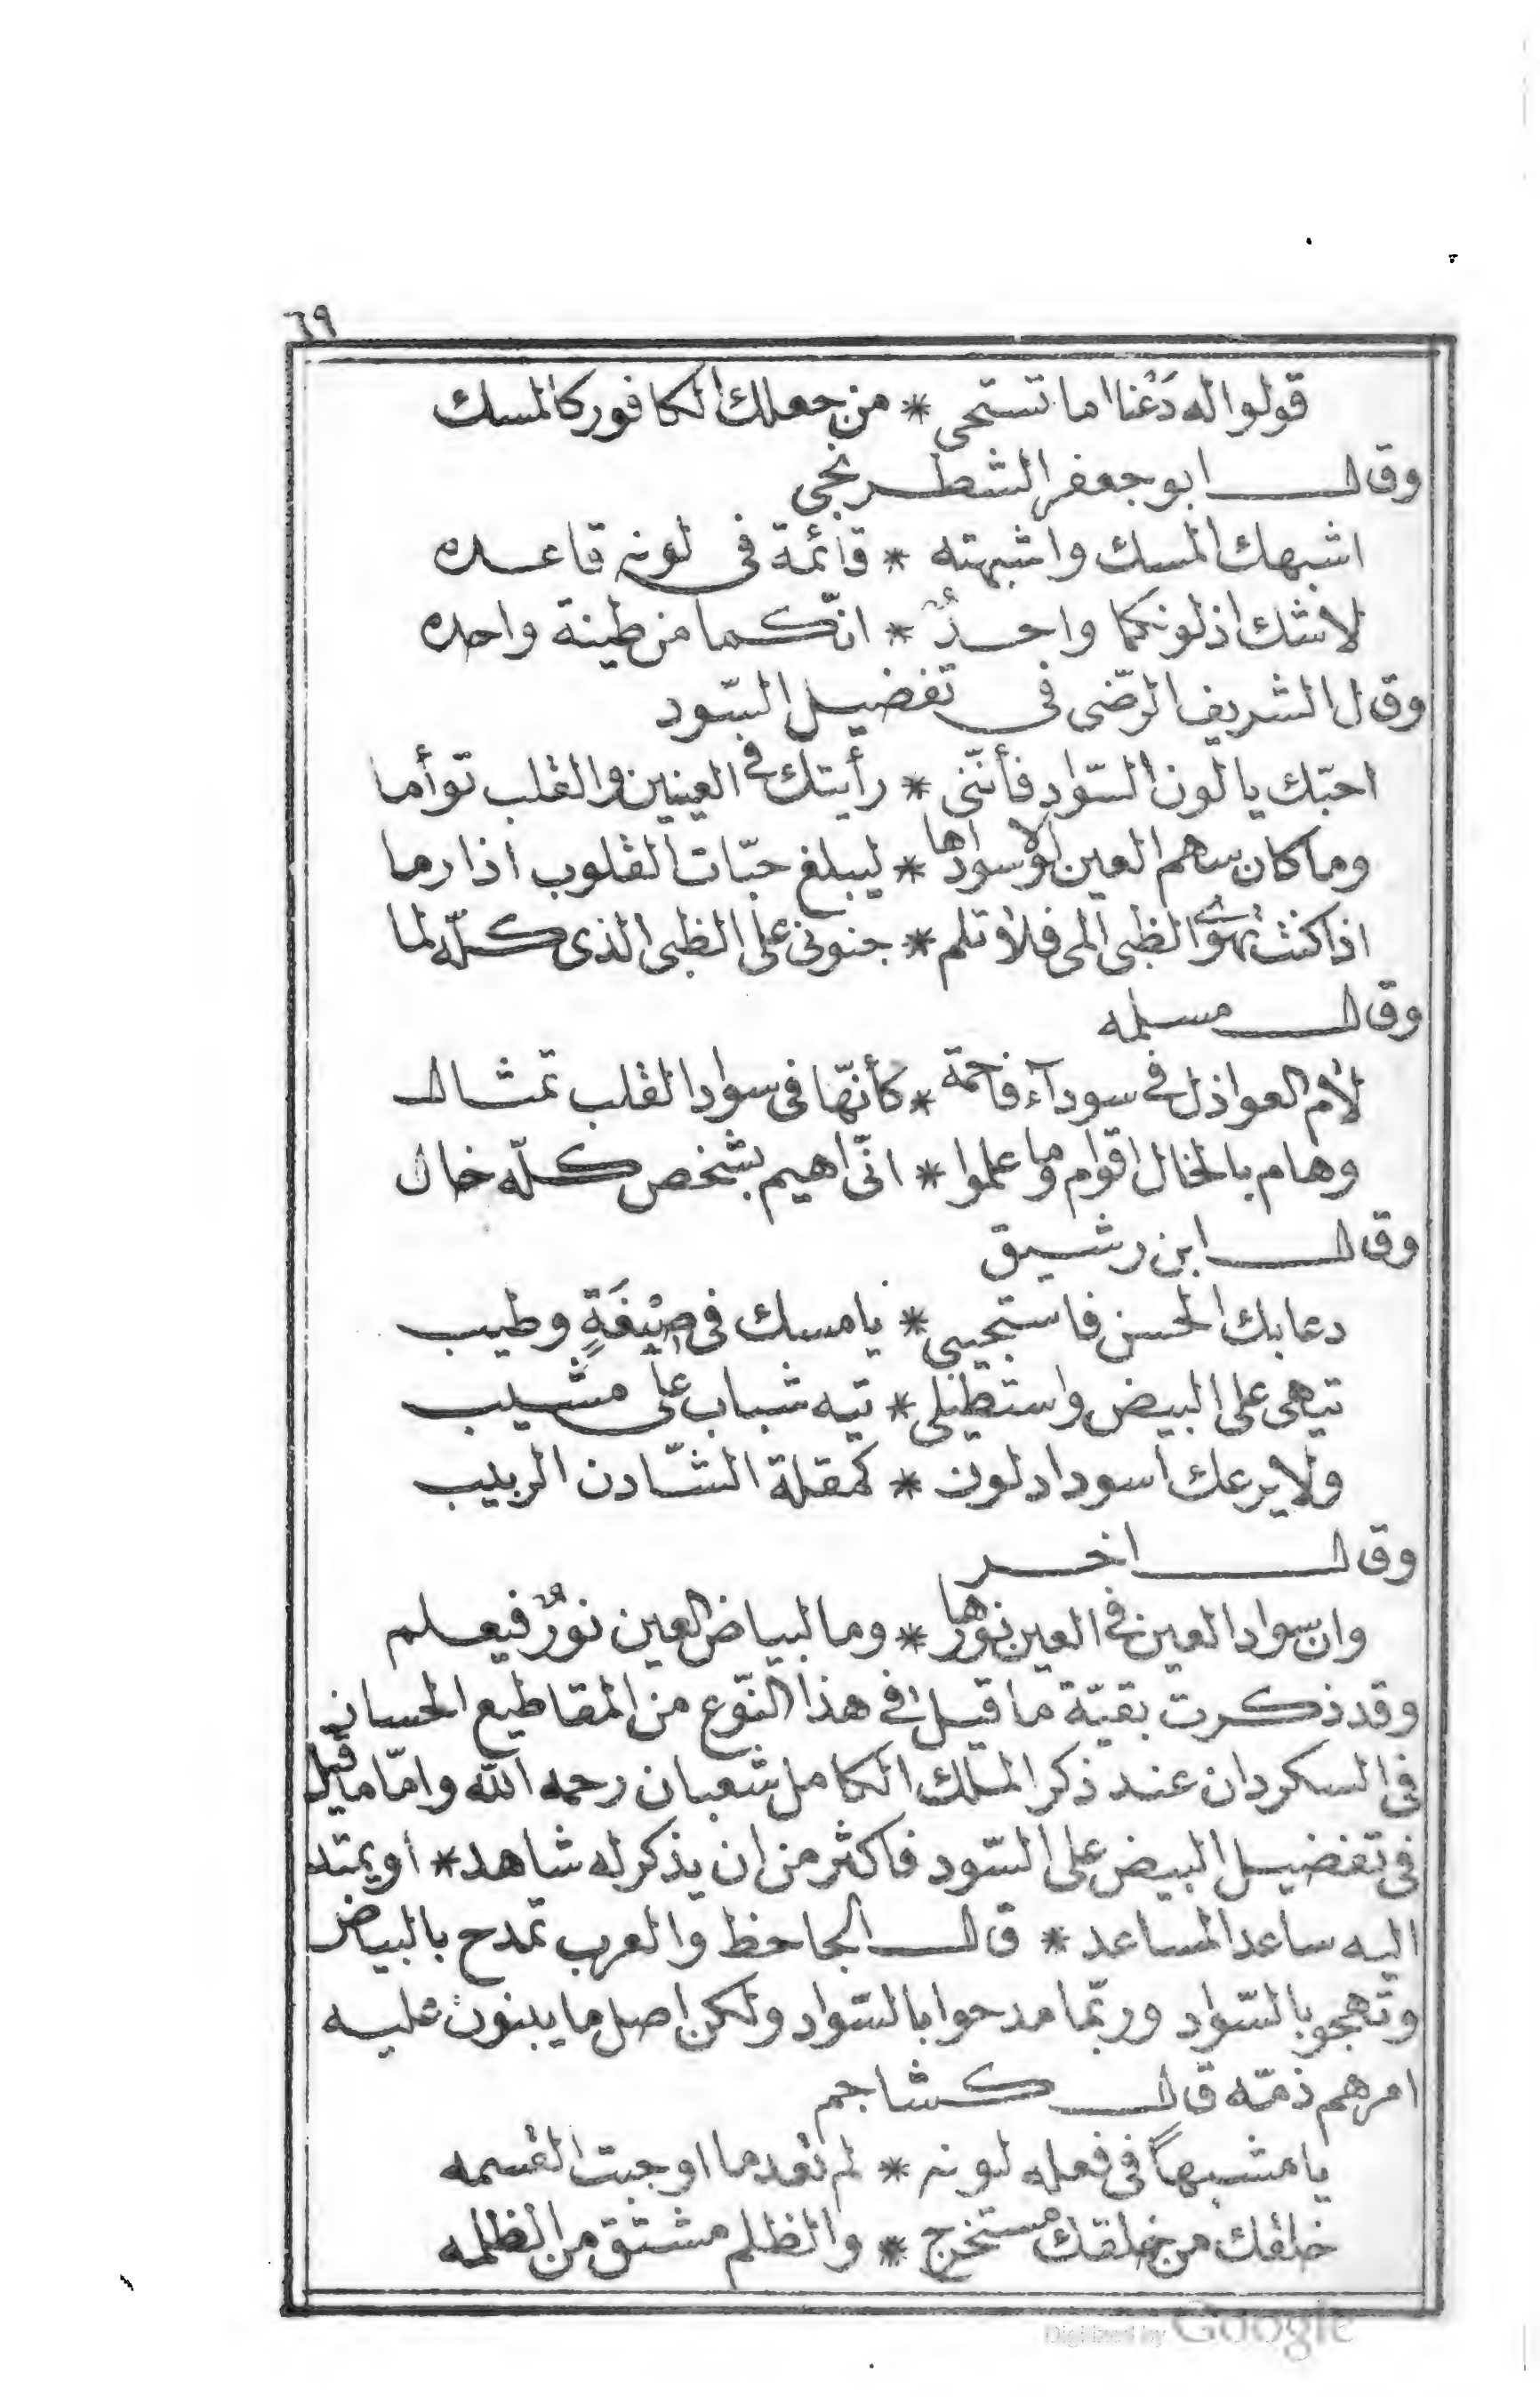 ٦٩
قولوا له دَعْنا اما تستحي * من جعلك الكافور كالمسك
وقال ابو جعفر الشطرنجى
اشبهك المسك واشبهته * قائمة فى لونه قاعده
لا شك اذ لونكما واحدٌ * انّكما من طينة واحده
وقال الشريف الرّضى فى تفضيل السّود
احبّك يا لون السّواد فأنّنى * رأيتك في العينين والقلب توأما
وما كان سهم العين لولا سوادها * ليبلغ حبّات القلوب اذا رما
اذا كنت تهوى الظبى المى فلا تلم * جنونى على الظبى الذى كلّه لما
وقال مسلمه
لام العواذل في سودآء فاحمة * كأنهّا فى سواد القلب تمثال
وهام بالخال اقوام وما علموا * انّى اهيم بشخص كلّه خال
وقال ابن رشيق
دعا بك الحسن فاستجيبى * يا مسك فى صِبْغَةٍ وطيب
تيهى على البيض واستطيلى * تيه شباب على مشيب
ولا يرعك اسوداد لون * كمقلة الشّادن الربيب
وقال اخر
وان سواد العين في العين نورها * وما لبياض العين نورٌ فيعلم
وقد ذكرت بقيّة ما قيل في هذا النّوع من المقاطيع الحسان
في السكردان عند ذكر الملك الكامل شعبان رحمه الله وامّا ما قيل
فى تفضيل البيض على السّود فاكثر من ان يذكر له شاهد * او يمتد
اليه ساعد المساعد * قال الجاحظ والعرب تمدح بالبياض
وتهجو بالسّواد وربّما مدحوا بالسّواد ولكن اصل ما يبنون عليه
امرهم ذمّه قال كشاجم
يا مشبهاً فى فعله لونه * لم تعد ما اوجبت القسمه
خلقك من خلقك مستخرج * والظلم مشتق من الظلمه
Digitized by Google